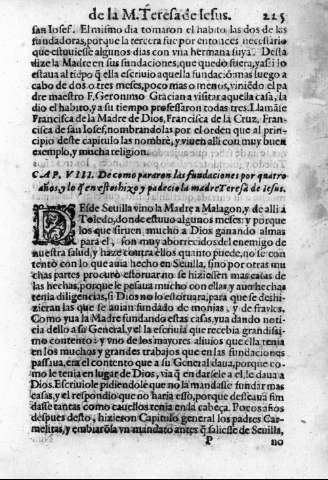 de la M. Teresa de Iesus. 225
san Iosef. El mismo dia tomaron el habito las dos de las
fundadoras, porque la tercera fue por entonces necessario
que estuuiesse algunos dias con vna hermana suya. Desta
dize la Madre en sus fundaciones, que quedò fuera, y assi lo
estaua al tiẽpo q̃ ella escriuio aquella fundaciõ: mas luego a
cabo de dos o tres meses, poco mas o menos, viniẽdo el pa
dre maestro F. Geronimo Gracian a visitar aquella casa, la
dio el habito, y a su tiempo professaron todas tres. Llamãse
Francisca de la Madre de Dios, Francisca de la Cruz, Fran-
cisca de san Iosef, nombrandolas por el orden que al prin-
cipio deste capitulo las nombrè, y viuen alli con muy buen
exemplo, y mucha religion.
CAP. VIII. De como pararon las fundaciones por quatro
años, y lo q̃ en estos hizo y padecio la madre Teresa de Iesus.
DEsde Seuilla vino la Madre a Malagon, y de alli a
Toledo, donde estuuo algunos meses: y porque
los que siruen mucho a Dios ganando almas
para el, son muy aborrecidos del enemigo de
nuestra salud, y haze contra ellos quanto puede, no se con
tentò con lo que auia hecho en Seuilla, sino por otras mu-
chas partes procurò estoruar no se hiziessen mas casas de
las hechas, porque le pesaua mucho con ellas, y aun hechas
tenia diligencias, si Dios no lo estoruara, para que se deshi-
zieran las que se auian fundado de monjas, y de frayles.
Como yua la Madre fundando estas casas, yua dando noti
cia dello a su General, y el la escriuia que recebia grandissi-
mo contento: y vno de los mayores aliuios que ella tenia
en los muchos y grandes trabajos que en las fundaciones
passaua, era el contento que a su General daua, porque co-
mo le tenia en lugar de Dios, via q̃ en darsele a el, le daua a
Dios. Escriuiole pidiendole que no la mandasse fundar mas
casas, y el respondio que no haria esso, porque desseaua fun
dasse tantas como cauellos tenia en la cabeça. Pocos años
despues desto, hizieron Capitulo general los padres Car-
melitas, y embiarõla vn mandato antes q̃ saliesse de Seuilla,
P no